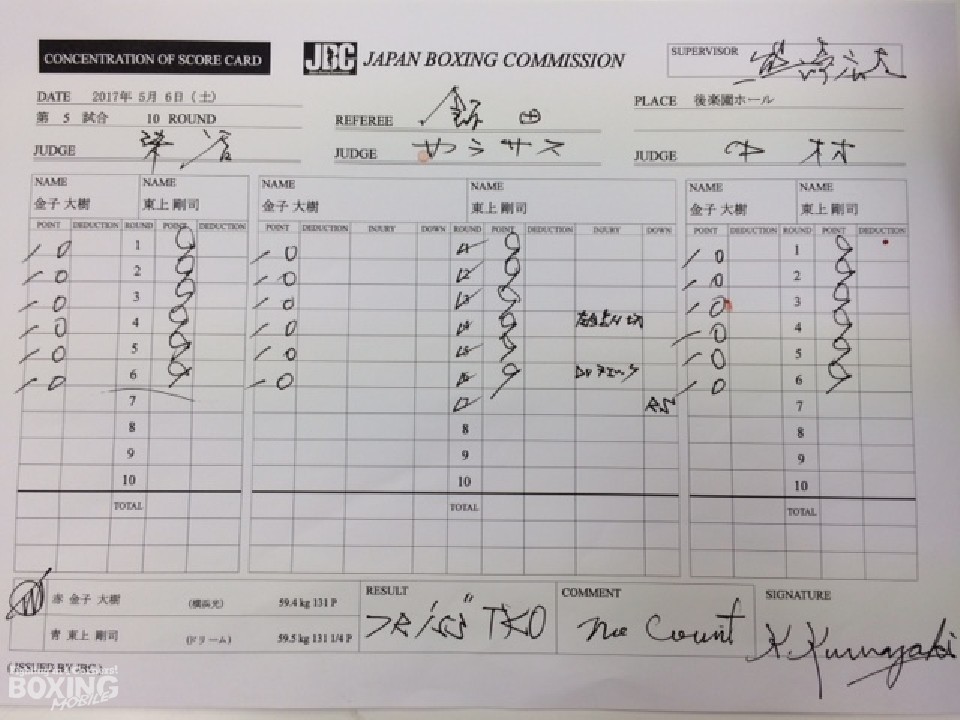 CONCENTRATION OF SCORE CARD
JBC JAPAN BOXING COMMISSION
SUPERVISOR
DATE 2017年 5月 6日 (土)
PLACE 後楽園ホール
第 5 試合 10 ROUND
REFEREE 飯田
JUDGE
JUDGE サラサス
JUDGE 中村
NAME NAME NAME NAME NAME NAME
金子 大樹 東上 剛司 金子 大樹 東上 剛司 金子 大樹 東上 剛司
POINT DEDUCTION ROUND POINT DEDUCTION POINT DEDUCTION INJURY DOWN ROUND POINT DEDUCTION INJURY DOWN POINT DEDUCTION ROUND POINT DEDUCTION
10 1 9 10 1 9 10 1 9
10 2 9 10 2 9 10 2 9
10 3 9 10 3 9 10 3 9
10 4 9 10 4 9 10 4 9
10 5 9 10 5 9 10 5 9
10 6 9 10 6 9 10 6 9
7 7 7
8 8 8
9 9 9
10 10 10
TOTAL TOTAL TOTAL
赤 金子 大樹 (横浜光) 59.4 kg 131 P
青 東上 剛司 (ドリーム) 59.5 kg 131 1/4 P
RESULT
TKO
COMMENT
no Count
SIGNATURE
K. Kumazaki
(ISSUED BY JBC)
BOXING
MOBILE